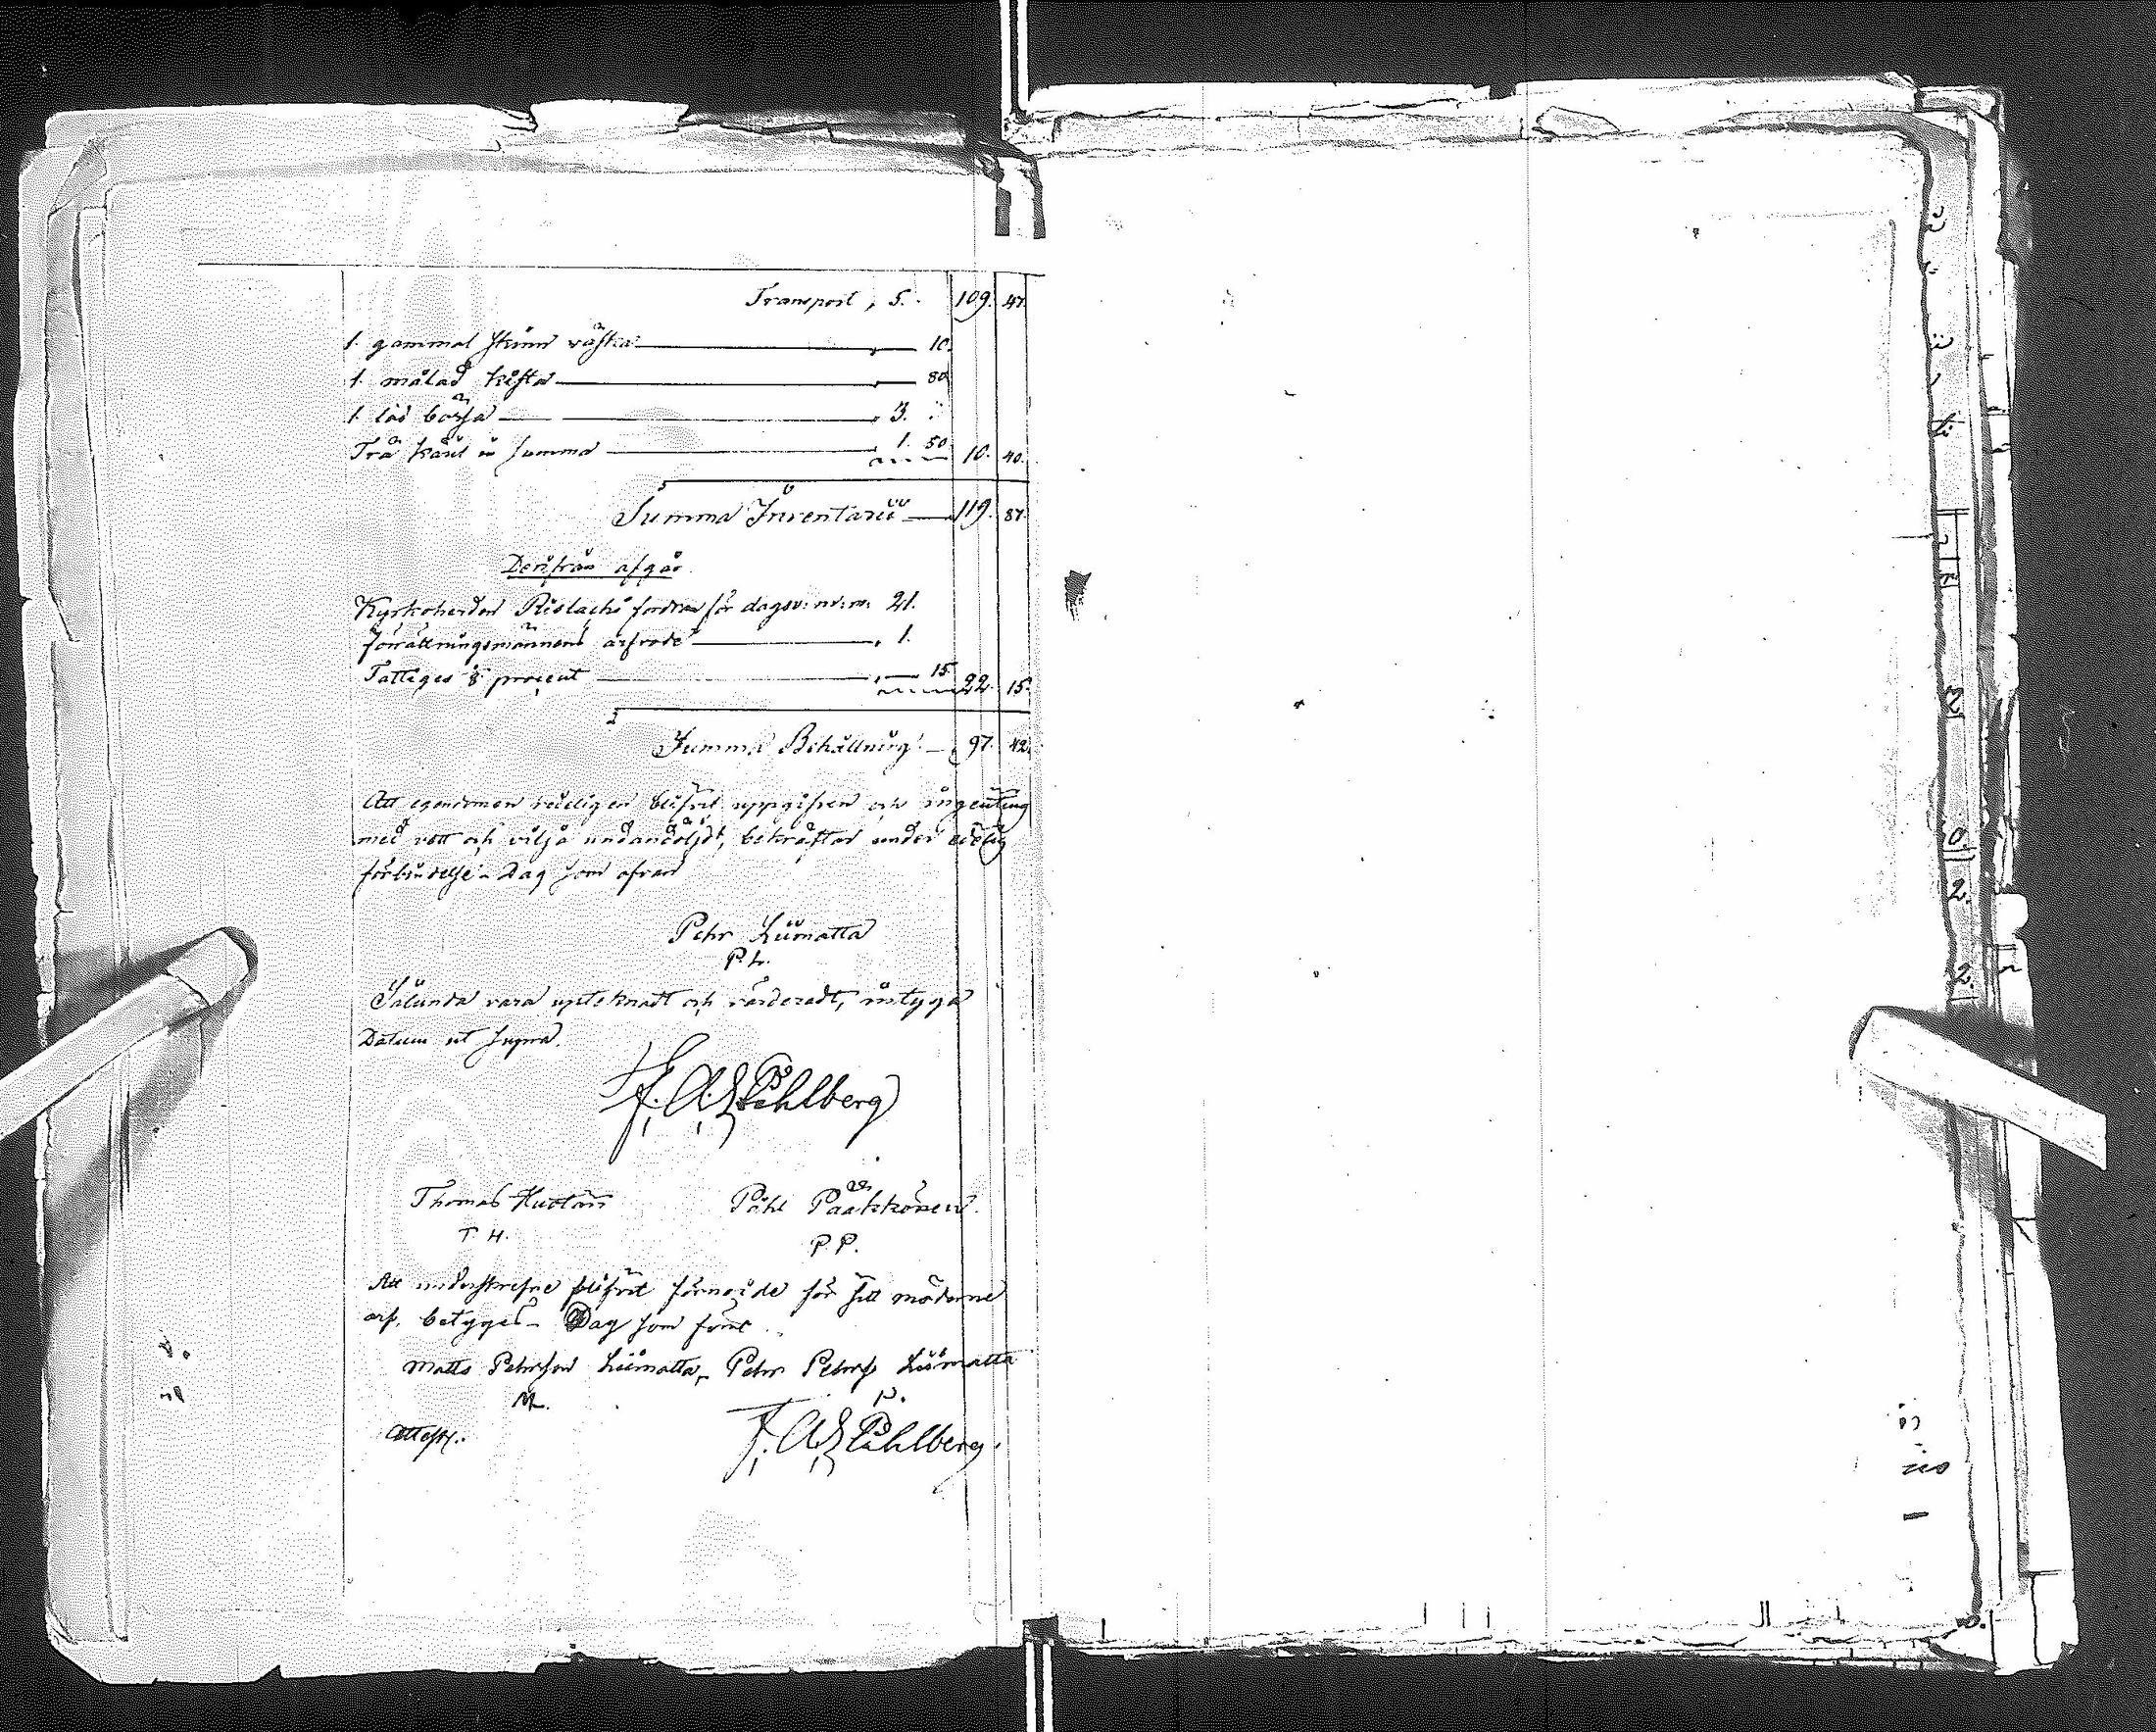 Transport, 5. 109. 47.
1. gammal skinn väska 10.
1. målad kista 80
1. lås börsa 3.
Trä käril i summa 1. 50 10. 40.
Summa Inventarii 119. 87.
Derifrån afgår
Kyrkoherden fordran för 21.
förrättningsmännens arfvode 1.
Fattiges procent 15 22. 15.
Summa Behållning 97. 42.
Att egendomen redeligen blifvit uppgifven och ingenting
med vett och vilja undandöljdt, bekräftar under edelig
förbindelse. Dag som ofvan
Pehr Liimatta
P. L.
Sålunda vara upteknadt och värderadt, intyga
Datum ut supra.
F. A. Ståhlberg
Thomas Huotari Påhl Paakkonen
T. H. P. P.
Att underskrefne blifvit förnöjde för sitt möderne
arf, betygas Dag som förut
Matts Pehrson Liimatta, Pehr Pehrss Liimatta
M. P.
Attest.
F. A. Ståhlberg.